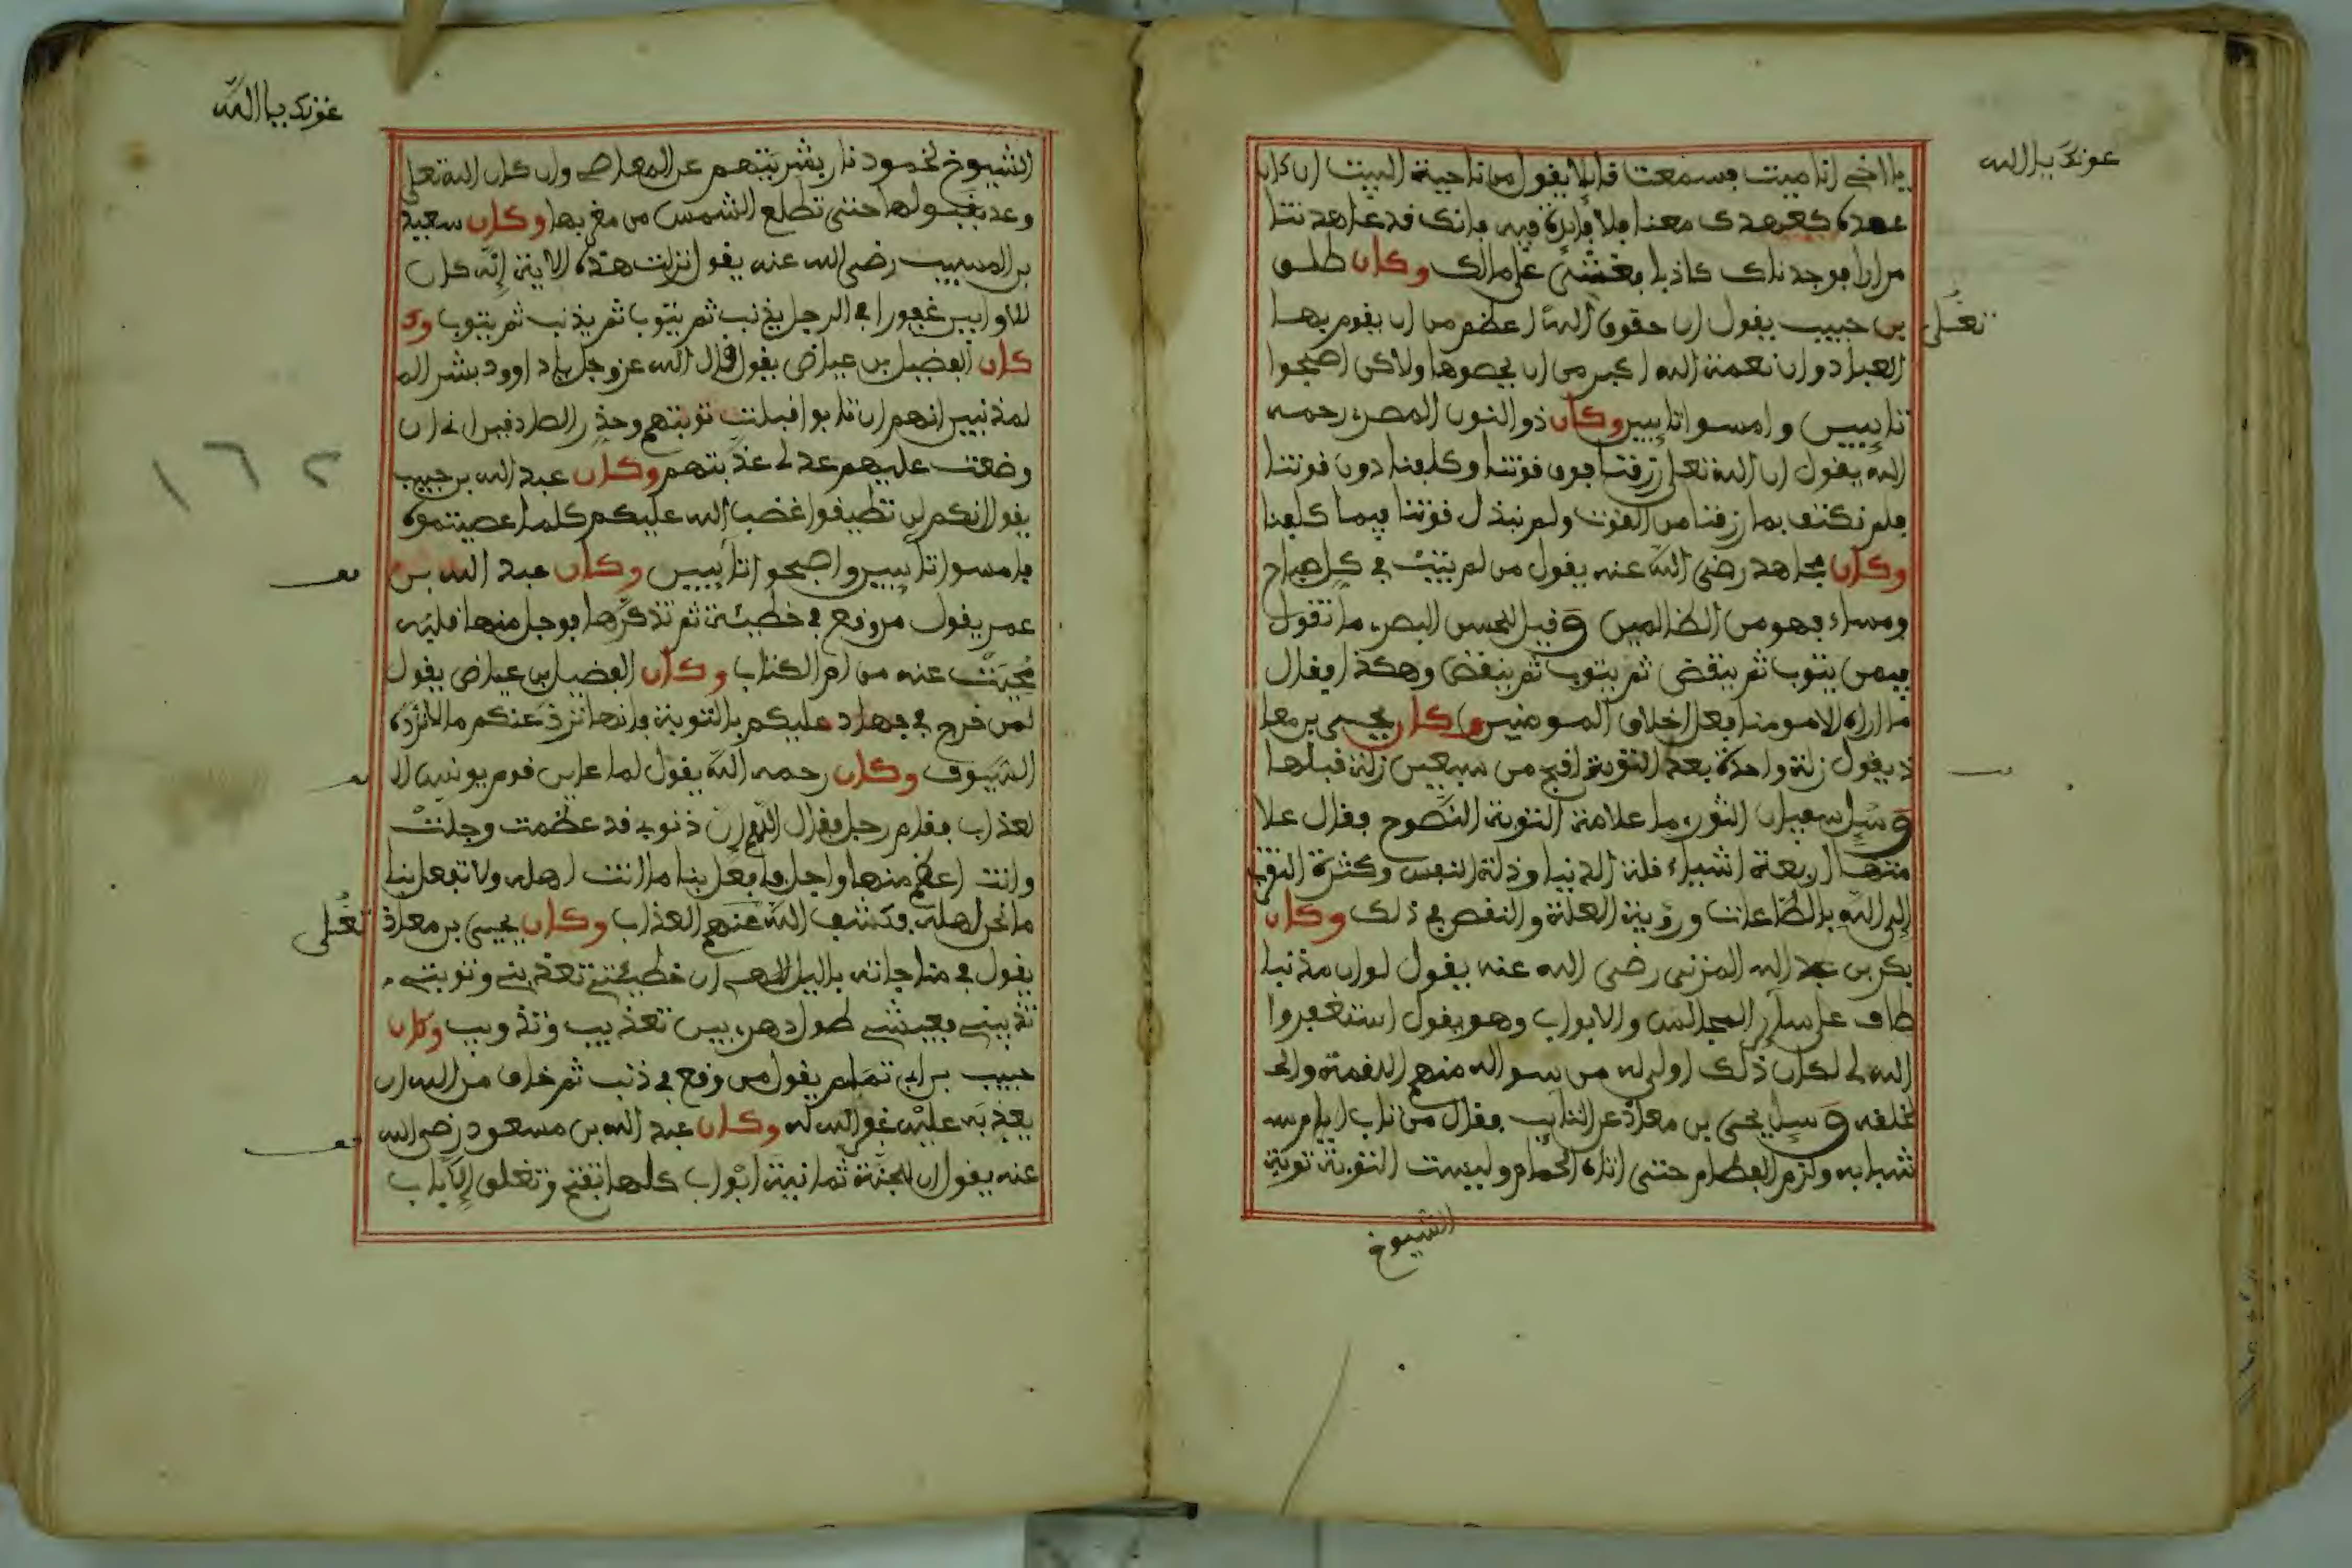 عونك يا الله
يا اخي انا ميت فسمعت قايلا يقول من ناحية البيت ان كان
عهدك كعهدك معنا فلا فايدة فيه فانك قد عاهدتنا
مرارا فوجدناك كاذبا فغشي على مالك وكان طلق
بن حبيب يقول ان حقوق الله اعظم من ان يقوم بها
تعلى
العباد وان نعمة الله اكبر من ان يحصوها ولاكن اصبحوا
تايبين وامسوا تايبين وكان ذو النون المصري رحمه
الله يقول ان الله تعلى رزقنا فوق قوتنا وكلفنا دون قوتنا
فلم نكتف بما رزقنا من القوت ولم نبذل قوتنا فيما كلفنا
وكان مجاهد رضي الله عنه يقول من لم يتب في كل صباح
ومساء فهو من الظالمين وقيل للحسن البصري ما تقول
فيمن يتوب ثم ينقض ثم يتوب ثم ينقض وهكذا فقال
ما اراه الا مومنا فعل اخلاق المومنين وكان يحيى بن معا
ذ يقول زلة واحدة بعد التوبة اقبح من سبعين زلة قبلها
وسيل سفيان الثوري ما علامة التوبة النصوح فقال علا
متها اربعة اشياء قلة الدنيا وذلة النفس وكثرة التقرب
الى الله بالطاعات ورؤية العلة والنقص في ذلك وكان
بكر بن عبد الله المزني رضي الله عنه يقول لو ان مذنبا
طاف على ساير المجالس والابواب وهو يقول استغفروا
الله لى لكان ذلك اولى له من سواله منهم اللقمة والخـ
لخلقه وسيل يحيى بن معاذ عن التايب فقال من تاب ايام
شبابه ولزم الفطام حتى اتاه الحمام وليست التوبة توبة
الشيوخ
عونك يا الله
الشيوخ لخمود نار بشريتهم عن المعاصي وان كان الله تعلى
وعد بقبولها حتى تطلع الشمس من مغربها وكان سعيد
بن المسيب رضي الله عنه يقول نزلت هذه الاية انه كان
للاوابين غفورا في الرجل يذنب ثم يتوب ثم يذنب ثم يتوب وكـ
كان الفضيل بن عياض يقول قال الله عز وجل يا داوود بشر الـ
لمذنبين انهم ان تابوا قبلت توبتهم وحذر الصادقين اني ان
وضعت عليهم عدلى عذبتهم وكان عبد الله بن حبيب
١٦٢
يقول انكم لن تطيقوا غضب الله عليكم كلما عصيتموه
فامسوا تايبين واصبحوا تايبين وكان عبد الله بن
عمر يقول من وقع في خطيئة ثم تذكرها فوجل منها قلبه
محيت عنه من ام الكتاب وكان الفضيل بن عياض يقول
لمن خرج في جهاد عليكم بالتوبة فانها تزد عنكم ما لا ترده
السيوف وكان رحمه الله يقول لما عاين قوم يونس الا
لعذاب فقام رجل فقال اللهم ان ذنوبي قد عظمت وجلت
وانت اعظم منها واجل فافعل بنا ما انت اهله ولا تفعل بنا
ما نحن اهله فكشف الله عنهم العذاب وكان يحيى بن معاذ
تعلى
يقول في مناجاته بالليل اللهم ان خطيئتي تعذبني وتوبتي
تذيبني فعيشتي طول دهري بين تعذيب وتذويب وكان
حبيب بن ابي تمام يقول من وقع في ذنب ثم خاف من الله ان
يعذبه عليه غفر الله له وكان عبد الله بن مسعود رضي الله
عنه يقول ان للجنة ثمانية ابواب كلها تفتح وتغلق الا باب